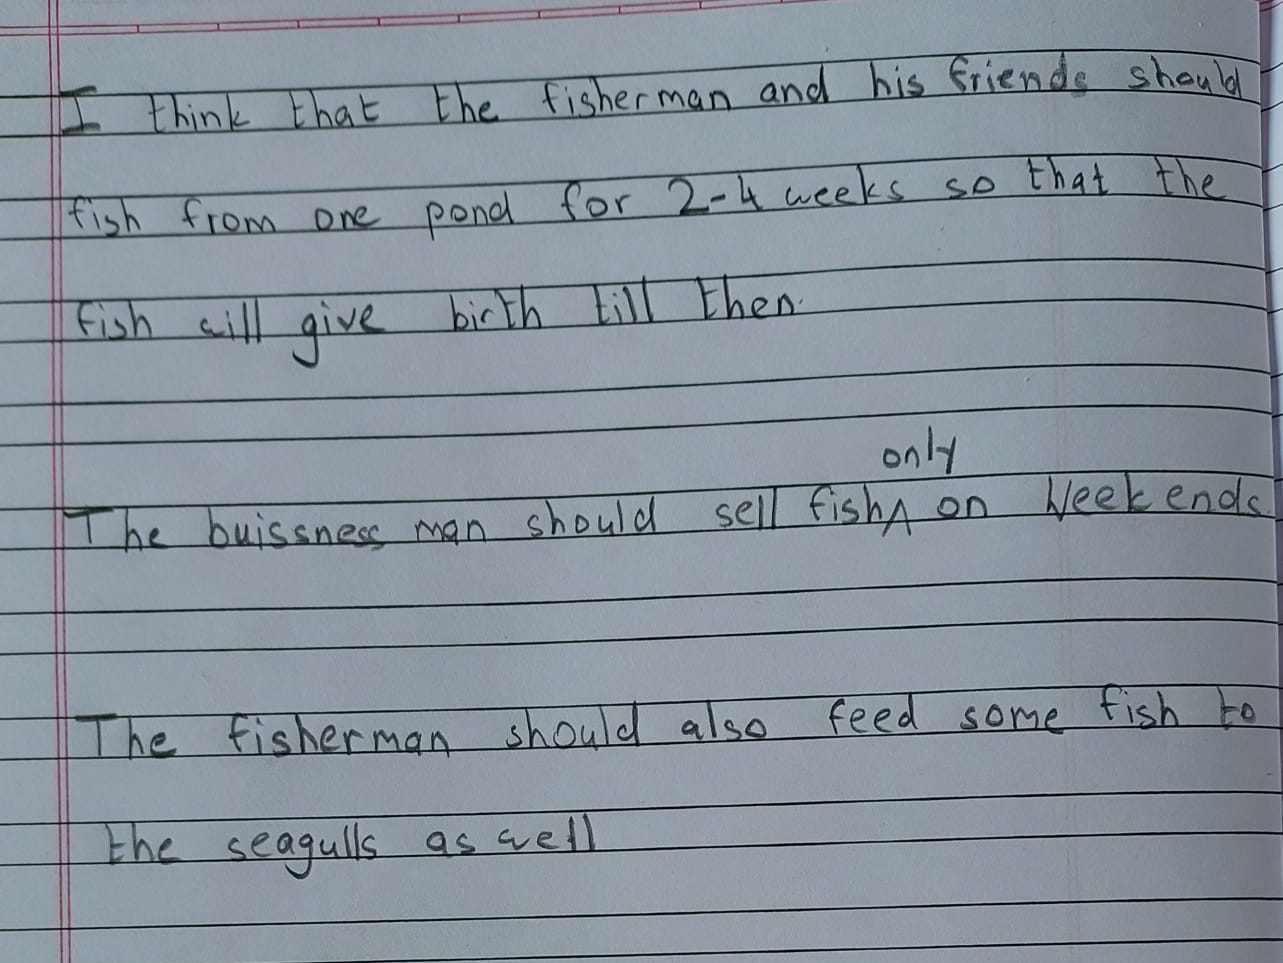 I think that the fisherman and his friends should
fish from one pond for 2-4 weeks so that the
fish will give birth till then.
only
The buissness man should sell fish^ on Weekends.
The fisherman should also feed some fish to
the seagulls as well